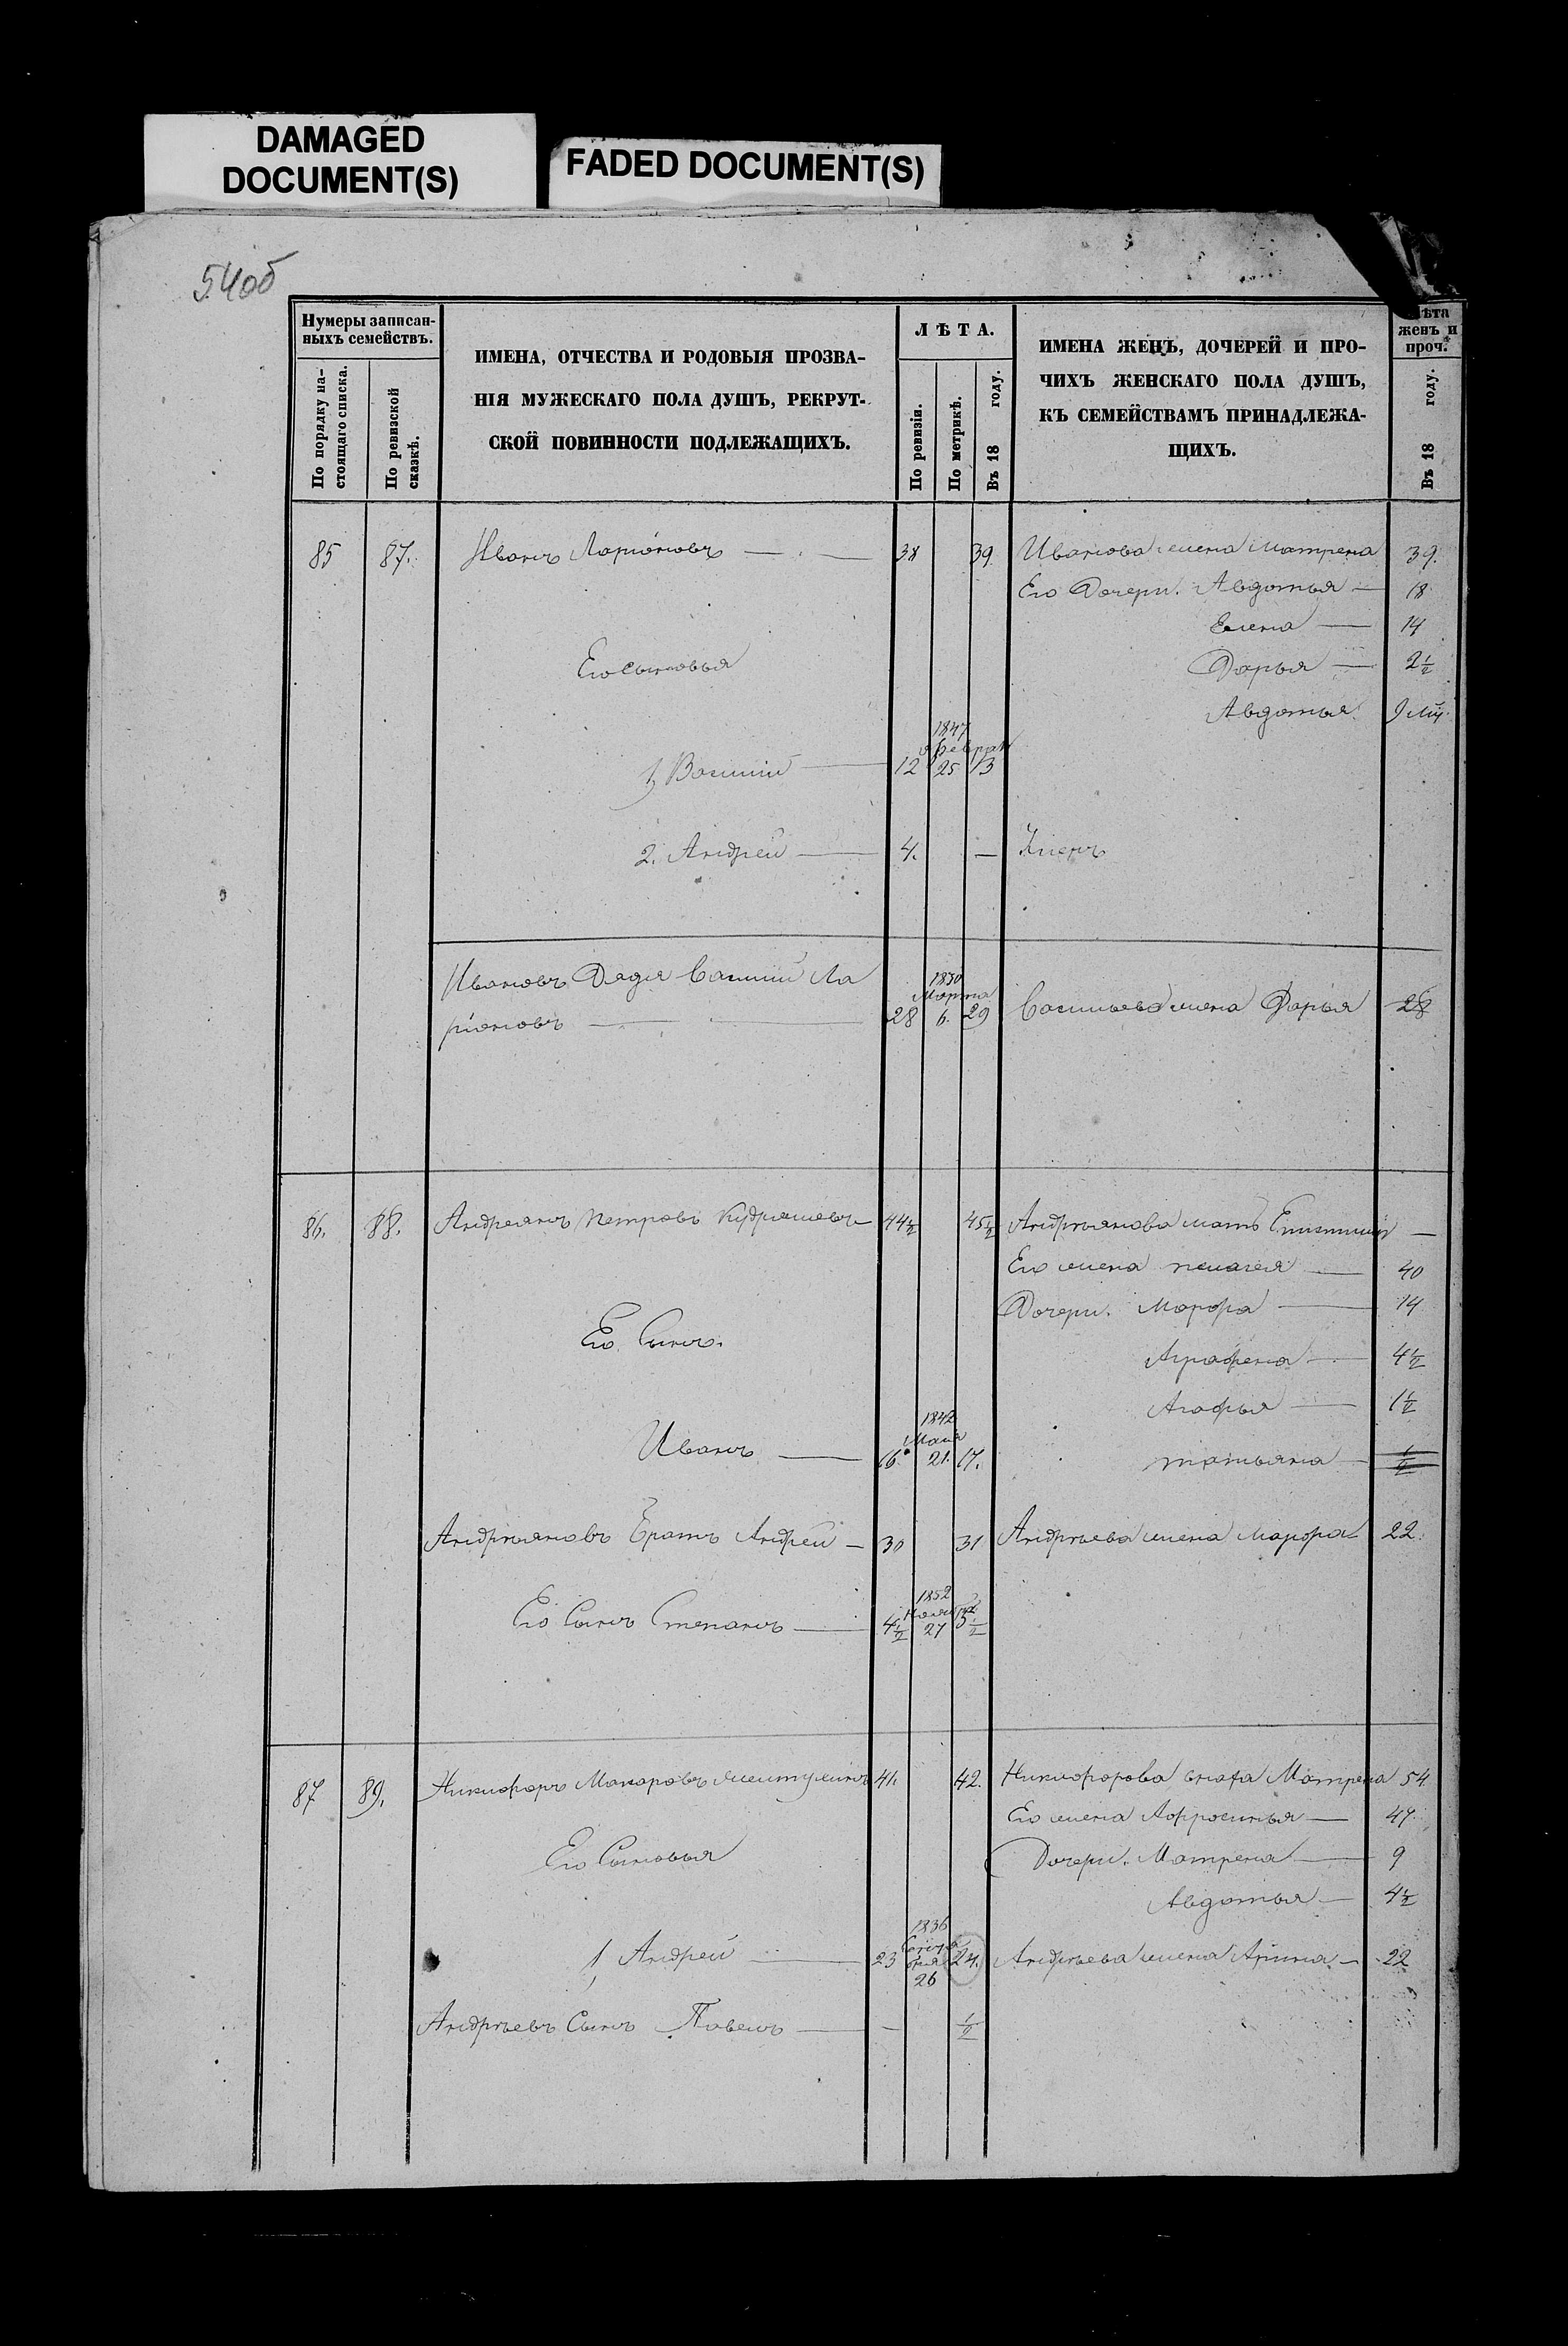 DAMAGED
DOCUMENT(S)
FADED DOCUMENT(S)
54об
Нумеры записан-
ныхъ семействъ.
По порядку на-
стоящаго списка.
По ревизской
сказкѣ.
ИМЕНА, ОТЧЕСТВА И РОДОВЫЯ ПРОЗВА-
НІЯ МУЖЕСКАГО ПОЛА ДУШЪ, РЕКРУТ-
СКОЙ ПОВИННОСТИ ПОДЛЕЖАЩИХЪ.
ЛѢТА.
По ревизіи.
По метрикѣ.
Въ 18 году.
ИМЕНА ЖЕНЪ, ДОЧЕРЕЙ И ПРО-
ЧИХЪ ЖЕНСКАГО ПОЛА ДУШЪ,
КЪ СЕМЕЙСТВАМЪ ПРИНАДЛЕЖА-
ЩИХЪ.
Лѣта
женъ и
проч.
Въ 18 году.
85 87. Иванъ Ларіоновъ — 38 39. Иванова жена Матрена 39.
Его Дочери. Авдотья — 18
Елена — 14
Его сыновья Дарья — 2½
Авдотья 9 мѣ.
1847
февраля
1, Василій — 12 25 13
2. Андрей — 4. —
Ивановъ Дядя Василій Ла
ріоновъ — 28 1830 Марта 6. 29 Васильева жена Дарья 28
86. 88. Андреянъ Петровъ Кудряшевъ 44½ 45½ Андреянова мать —
Его жена Пелагея — 40
Дочери. Марфа — 14
Его Сынъ. Аграфена — 4½
Агафья — 1½
Иванъ — 16. 1842 Мая 21. 17. Татьяна — ½
Андреяновъ Братъ Андрей — 30 31 Андреева жена Марфа 22.
Его Сынъ Степанъ — 4½ 1852 Ноября 27 5½
87 89. Никифоръ Макаровъ 41. 42. Никифорова сноха Матрена 54
Его жена Афросинья — 47.
Его Сыновья Дочери. Матрена — 9
Авдотья — 4½
1, Андрей — 23 1836 Сентя бря 26 24. Андреева жена Арина — 22
Андреевъ Сынъ Павелъ — — ½